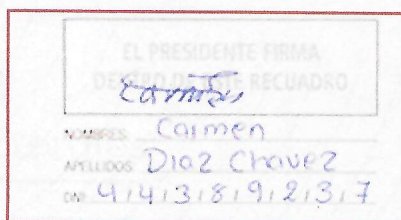 EL PRESIDENTE FIRMA
DENTRO DE ESTE RECUADRO
NOMBRES Carmen
APELLIDOS Diaz Chavez
DNI 4 1 4 3 8 9 2 3 7